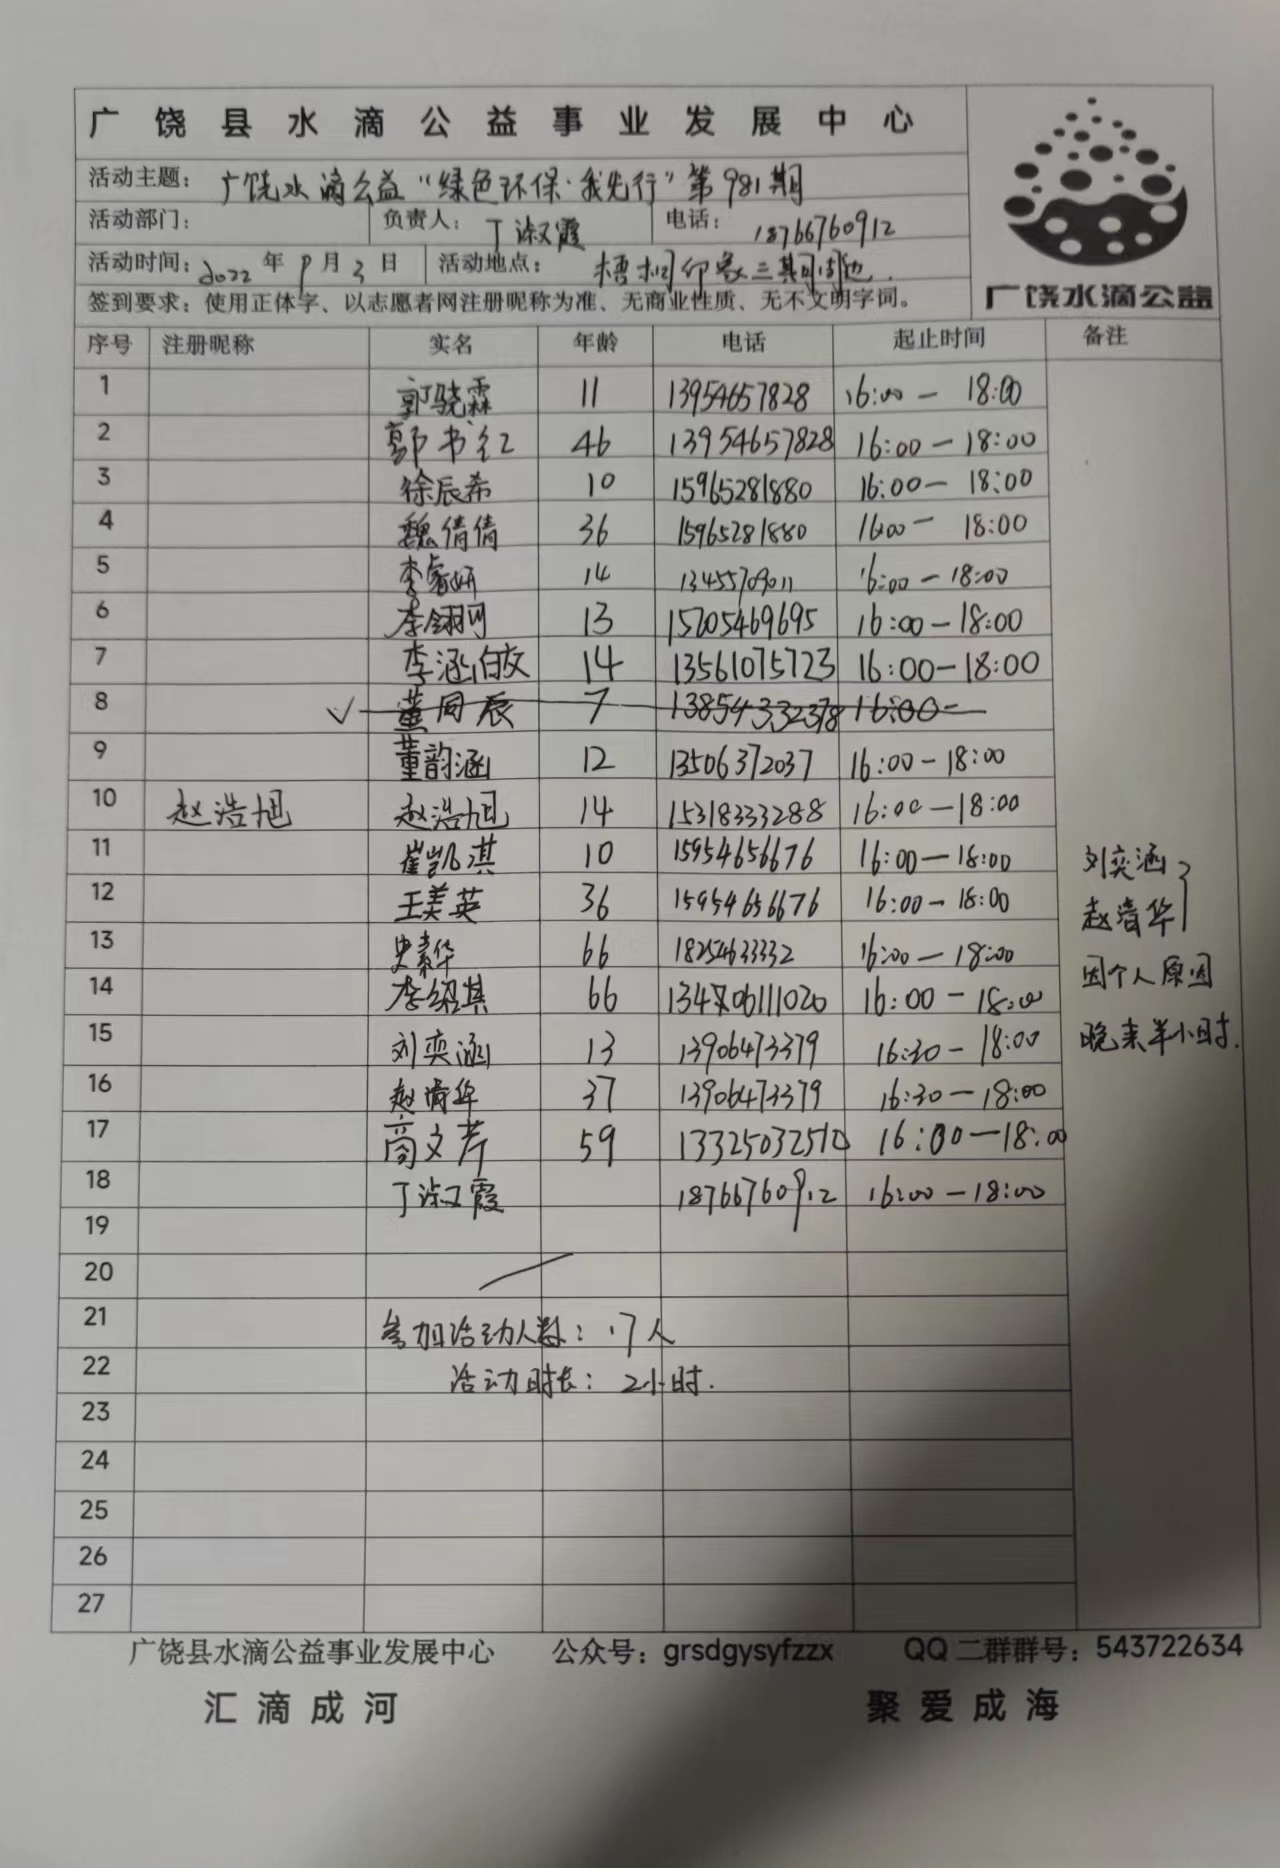 广饶县水滴公益事业发展中心
活动主题: 广饶水滴公益“绿色环保·我先行”第981期
活动部门: 负责人: 丁淑霞 电话: 18766760912
活动时间: 2022年9月3日 活动地点: 梧桐印象三期周边.
签到要求: 使用正体字、以志愿者网注册昵称为准、无商业性质、无不文明字词。
广饶水滴公益
序号 注册昵称 实名 年龄 电话 起止时间 备注
1 郭骁霖 11 13954657828 16:00— 18:00
2 郭书红 46 13954657828 16:00—18:00
3 徐辰希 10 15965281880 16:00— 18:00
4 魏倩倩 36 15965281880 16:00— 18:00
5 李睿妍 14 13455709011 16:00—18:00
6 李翎珂 13 15205469695 16:00—18:00
7 李涵 14 13561075723 16:00—18:00
8 董同辰 7 13854332378 16:00—
9 董韵涵 12 13506372037 16:00—18:00
10 赵浩旭 赵浩旭 14 15318333288 16:00—18:00
11 崔凯淇 10 15954656676 16:00—18:00
12 王美英 36 15954656676 16:00—18:00
13 史素华 66 18254633332 16:00—18:00
14 李绍其 66 16:00—18:00
15 刘奕涵 13 13906473379 16:30—18:00
16 赵清华 37 13906473379 16:30—18:00
17 商文芹 59 13325032510 16:00—18:00
18 丁淑霞 18766760912 16:00—18:00
刘奕涵
赵清华
因个人原因
晚来半小时.
19
20
21 参加活动人数: 17人
22 活动时长: 2小时.
23
24
25
26
27
广饶县水滴公益事业发展中心 公众号: grsdgysyfzzx QQ二群群号: 543722634
汇滴成河 聚爱成海